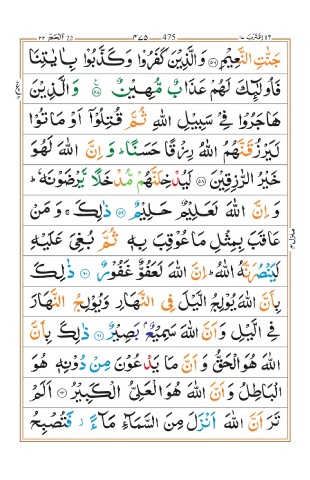 ٢٢ اَلْحَجّ 22 ٤٧٥ 475 اِقْتَرَبَ ١٧
جَنّٰتِ النَّعِيْمِ ۟۵۶ وَالَّذِيْنَ كَفَرُوْا وَكَذَّبُوْا بِاٰيٰتِنَا
فَاُولٰٓئِكَ لَهُمْ عَذَابٌ مُّهِيْنٌ ۟۵۷ وَالَّذِيْنَ
هَاجَرُوْا فِيْ سَبِيْلِ اللّٰهِ ثُمَّ قُتِلُوْۤا اَوْ مَاتُوْا
لَيَرْزُقَنَّهُمُ اللّٰهُ رِزْقًا حَسَنًا ؕ وَاِنَّ اللّٰهَ لَهُوَ
خَيْرُ الرّٰزِقِيْنَ ۟۵۸ لَيُدْخِلَنَّهُمْ مُّدْخَلًا يَّرْضَوْنَهٗ ؕ
وَاِنَّ اللّٰهَ لَعَلِيْمٌ حَلِيْمٌ ۟۵۹ ذٰلِكَ ۚ وَمَنْ
عَاقَبَ بِمِثْلِ مَا عُوْقِبَ بِهٖ ثُمَّ بُغِيَ عَلَيْهِ
لَيَنْصُرَنَّهُ اللّٰهُ ؕ اِنَّ اللّٰهَ لَعَفُوٌّ غَفُوْرٌ ۟۶۰ ذٰلِكَ
بِاَنَّ اللّٰهَ يُوْلِجُ الَّيْلَ فِي النَّهَارِ وَيُوْلِجُ النَّهَارَ
فِي الَّيْلِ وَاَنَّ اللّٰهَ سَمِيْعٌۢ بَصِيْرٌ ۟۶۱ ذٰلِكَ بِاَنَّ
اللّٰهَ هُوَ الْحَقُّ وَاَنَّ مَا يَدْعُوْنَ مِنْ دُوْنِهٖ هُوَ
الْبَاطِلُ وَاَنَّ اللّٰهَ هُوَ الْعَلِيُّ الْكَبِيْرُ ۟۶۲ اَلَمْ
تَرَ اَنَّ اللّٰهَ اَنْزَلَ مِنَ السَّمَآءِ مَآءً ؗ فَتُصْبِحُ